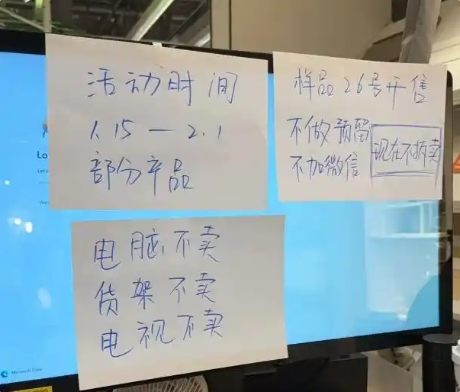 活动时间
1.15—2.1
部分产品
样品26号开售
不做预留
不加微信
现在不拆卖
电脑不卖
货架不卖
电视不卖
Lo